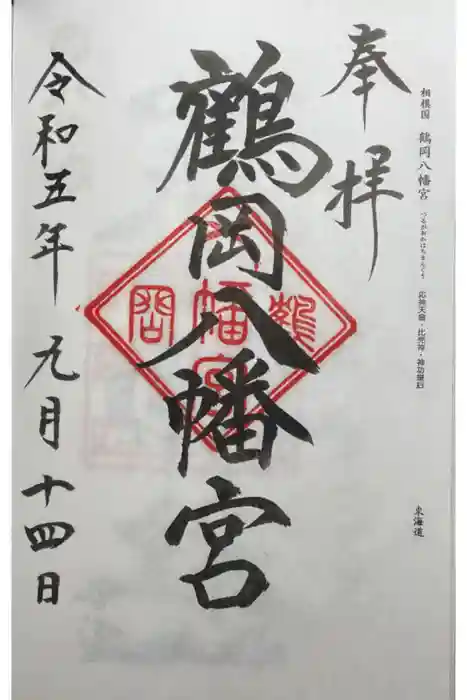 相模国 鶴岡八幡宮 つるがおかはちまんぐう 応神天皇・比売神・神功皇后 東海道
奉拝
鶴岡八幡宮
令和五年 九月十四日